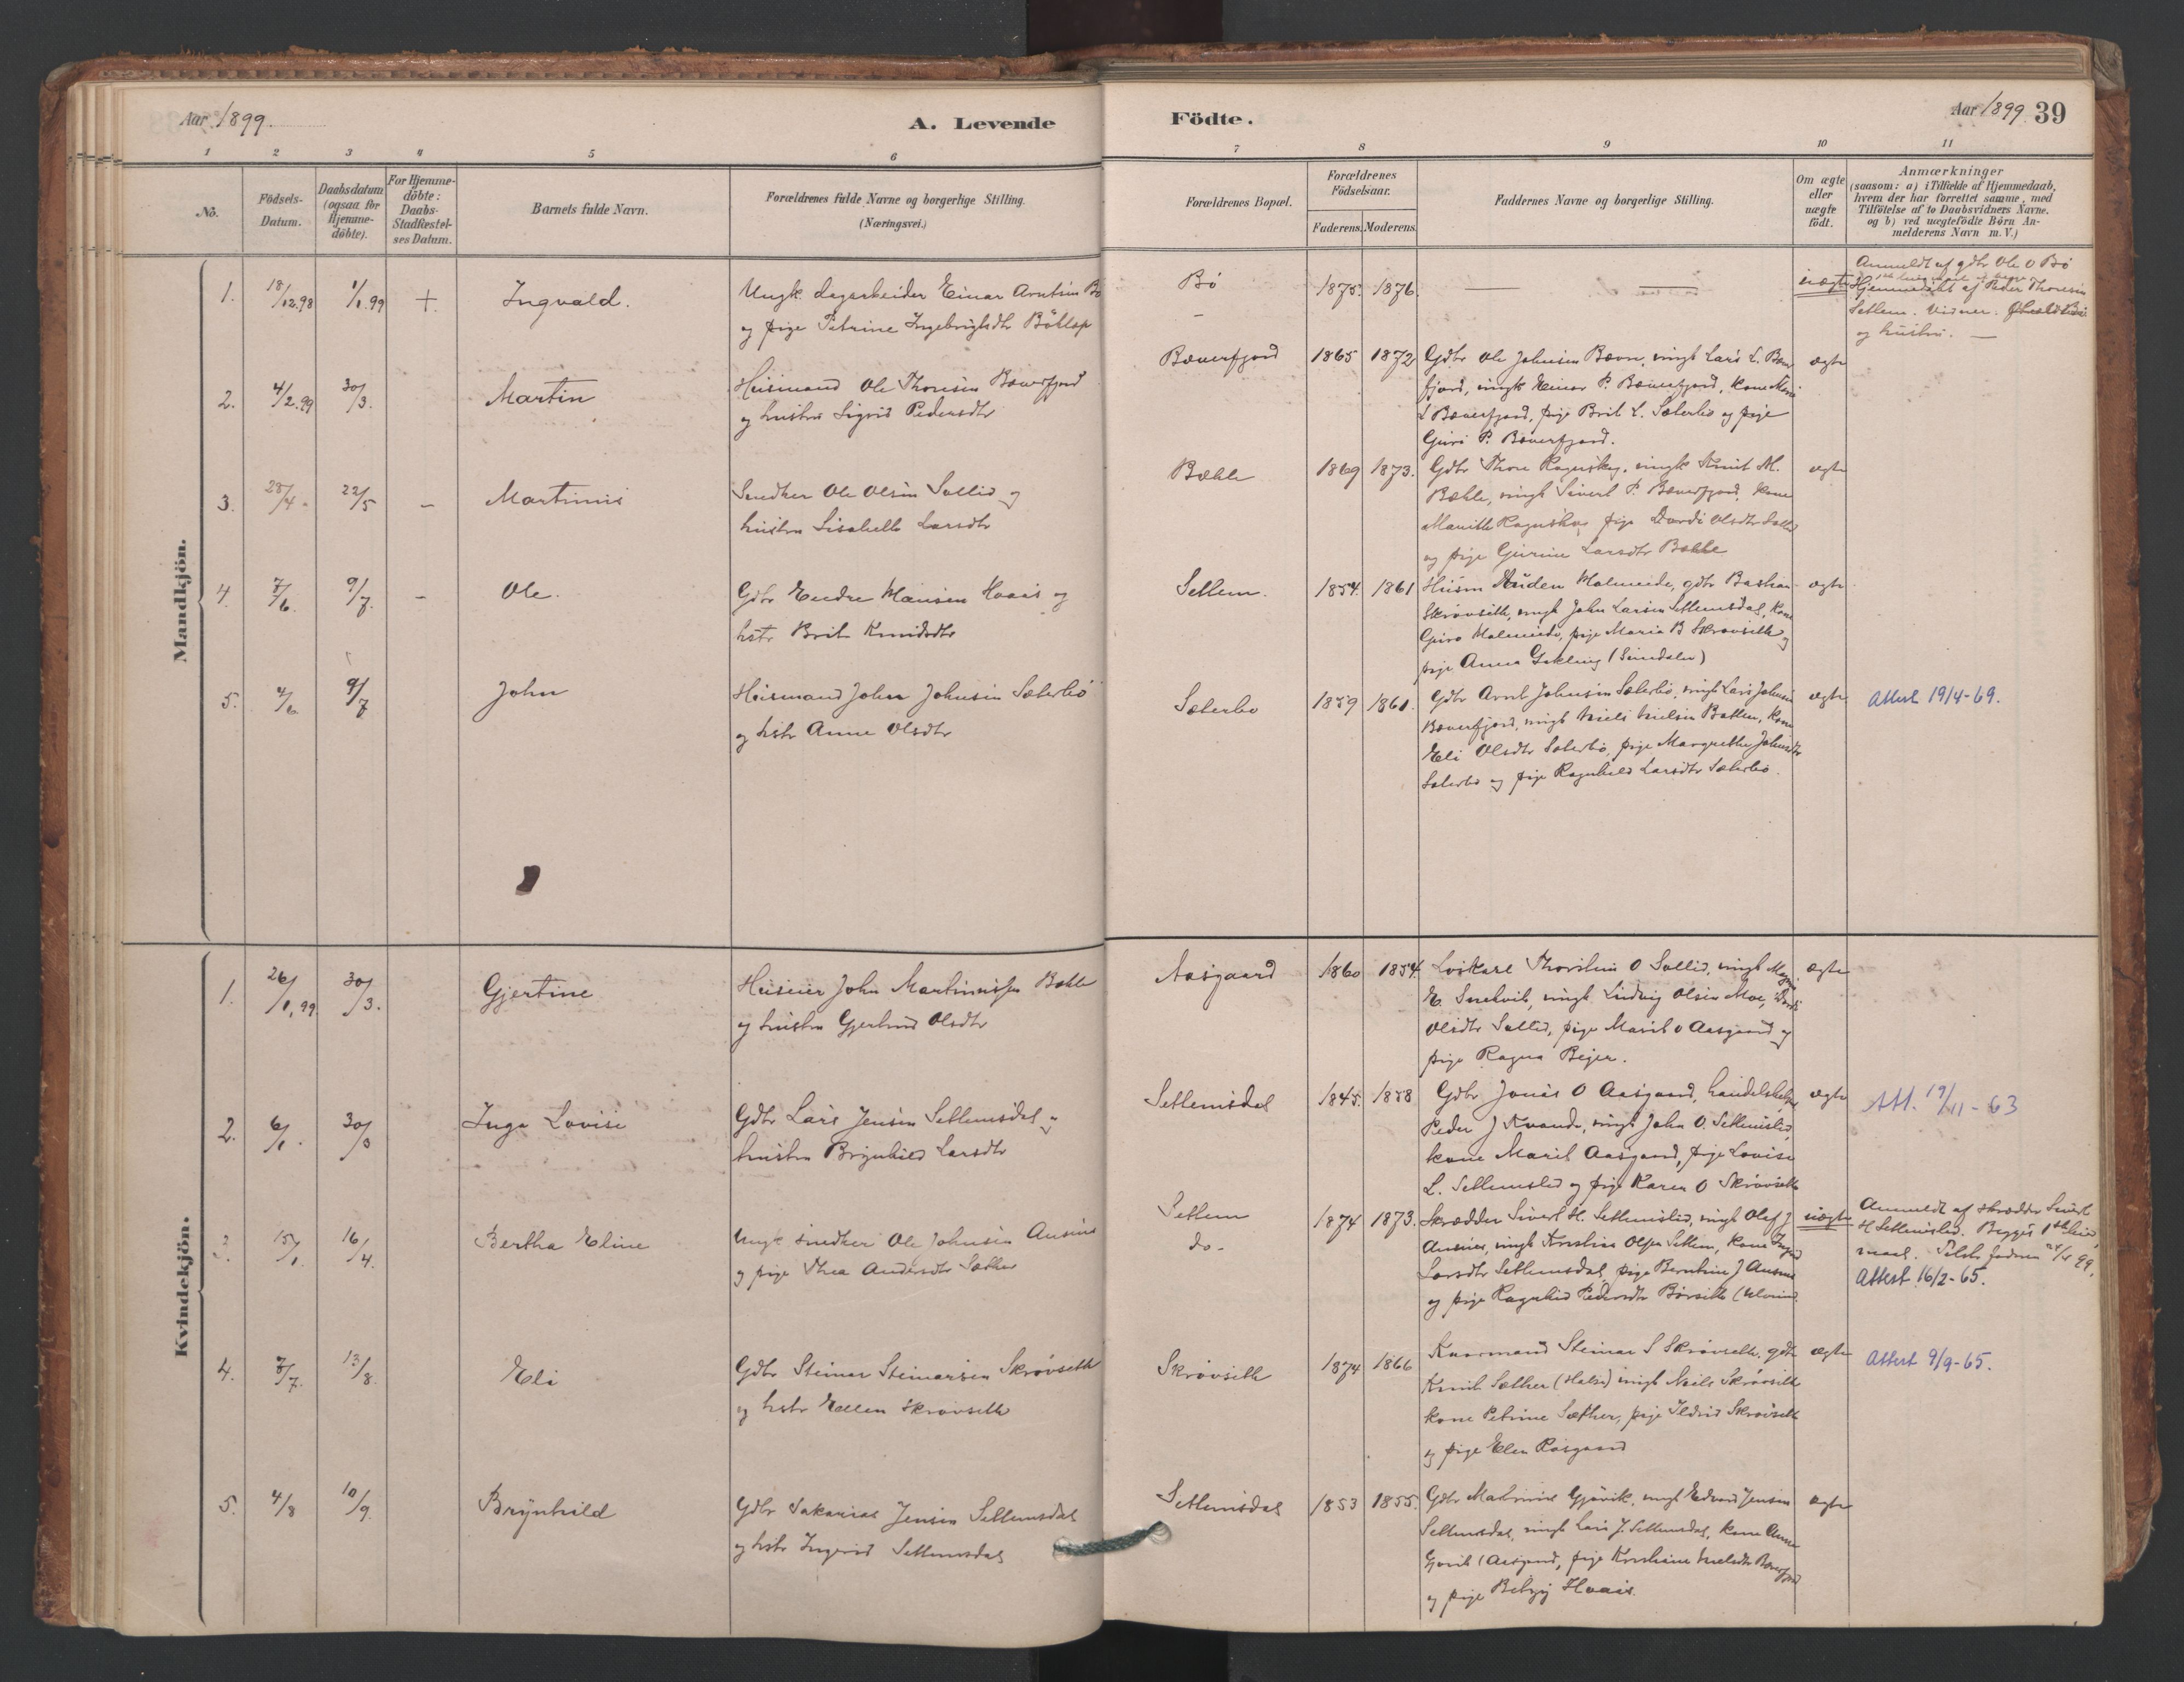 Aar 1899.
A. Levende Födte.
Aar 1899 39
1 2 3 4 5 6 7 8 9 10 11
No.
Födsels-Datum.
Daabsdatum (ogsaa for Hjemme-döbte).
For Hjemme-döbte: Daabs-Stadfæstel-ses Datum.
Barnets fulde Navn.
Forældrenes fulde Navne og borgerlige Stilling. (Næringsvei.)
Forældrenes Bopæl.
Forældrenes Födselsaar.
Faderens. Moderens.
Faddernes Navne og borgerlige Stilling.
Om ægte eller uægte födt.
Anmærkninger
(saasom: a) i Tilfælde af Hjemmedaab,
hvem der har forrettet samme, med
Tilföielse af to Daabsvidners Navne.
og b) ved uægtefödte Börn An-
melderens Navn m. V.)
Mandkjön.
1. 18/12.98 1/1.99 + Ingvald.
Ungk. dagarbeider Einar Arntsen Bö
og pige Petrine Ingebrigtsdtr
Bö 1875. 1876. — — uægte
Anmeldt af gdbr Ole O Bö
Hjemmedöbt af Peder Thoresen
Settem. Vidner:
og hustru. —
2. 4/2.99 30/3. Martin
Husmand Ole Thoresen Bæverfjord
og hustru Sigrid Pedersdtr
Bæverfjord 1865 1872 ægte
Gdbr Ole Johnsen Bævre, ungk Lars L. Bæver
fjord, ungk Einar P. Bæverfjord, kone
L Bæverfjord, pige Brit L. Sæterbö og pige
Guri P. Bæverfjord.
3. 28/4 22/5 – Martinus
Snedker Ole Olsen Sollid og
hustru Lisabeth Larsdtr
Bæhle 1869 1873. ægte
Gdbr Thore, ungk Knut M.
Bæhle, ungk Sivert P. Bæverfjord, kone
Marith, pige Dordi Olsdtr Sollid
og pige Gurine Larsdtr Bæhle
4. 7/6. 9/7. – Ole.
Gdbr Endre Hansen Haais og
hstr Brit Knudsdtr
Settem. 1854. 1861 ægte
Husm Auden Halmeide, gdbr Bastian
Skrövseth, ungk John Larsen Settemsdal, kone
Guro Halmeide, pige Maria B Skrövseth og
pige Anna (Surndalen)
5. 4/6 9/7 John
Husmand John Johnsen Sæterbö
og hstr Anne Olsdtr
Sæterbo 1859 1861. ægte
Gdbr Arnt Johnsen Sæterbö, ungk Lars Johnsen
Bæverfjord, ungk Niels Nielsen, kone
Eli Olsdtr Sæterbö, pige Margrethe Johnsdtr
Sæterbö og pige Ragnhild Larsdtr Sæterbö.
Attest 19/4-69.
Kvindekjön.
1. 26/1.99. 30/3. Gjertine
Huseier John Martinussen Bæhle
og hustru Gjertrud Olsdtr
Aasgaard 1860 1854. ægte
Löskarl Thorstein O Sollid, ungk
E. Snekvik, ungk Ludvig Olsen Moe, Dordi
Olsdtr Sollid, pige Marit O Aasgaard og
pige Ragna Bejer.
2. 6/1. 30/3 Inga Lovise
Gdbr Lars Jensen Settemsdal og
hustru Brynhild Larsdtr
Settemsdal 1845. 1858 ægte
Gdbr Jonas O Aasgaard,
Peder J Kvande, ungk John O. Settemslid,
kone Marit Aasgaard, pige Lovise
L. Settemslid og pige Karen O Skrövseth
Att. 19/11-63
3. 15/1. 16/4. Bertha Eline
Ungk snedker Ole Johnsen Ansnes
og pige Thea Andersdtr Sæther
Settem 1874 1873. uægte
do-
Skrædder Sivert H. Settemslid, ungk Olof J
Ansnes, ungk Kristian Olsen Settem, kone
Larsdtr Settemsdal, pige Berntine J Ansnes
og pige Ragnhild Pedersdtr
Anmeldt af skrædder Sivert
H Settemslid. Begges 1ste leier
maal.
Attest 16/2-65.
4. 7/7. 13/8. Eli
Gdbr Steinar Steinarsen Skrövseth
og hstr Ellen Skrövseth
Skrövseth 1874 1866 ægte
Kaarmand Steinar S Skrövseth, gdbr
Knut Sæther (Halse) ungk Niels Skrövseth
kone Petrine Sæther, pige Ildrid Skrövseth
og pige Elen Aasgaard
Attest 9/9-65.
5. 4/8 10/9. Brynhild
Gdbr Sakarias Jensen Settemsdal
og hstr Ingerid Settemsdal
Settemsdal 1853 1855. ægte
Gdbr Martinus Gjövik, ungk Edvard Jensen
Settemsdal, ungk Lars J. Settemsdal, kone Anne
Gjövik (Aasgaard, pige Kristiane Nielsdtr Bæverfjord
og pige Betzy Haais.